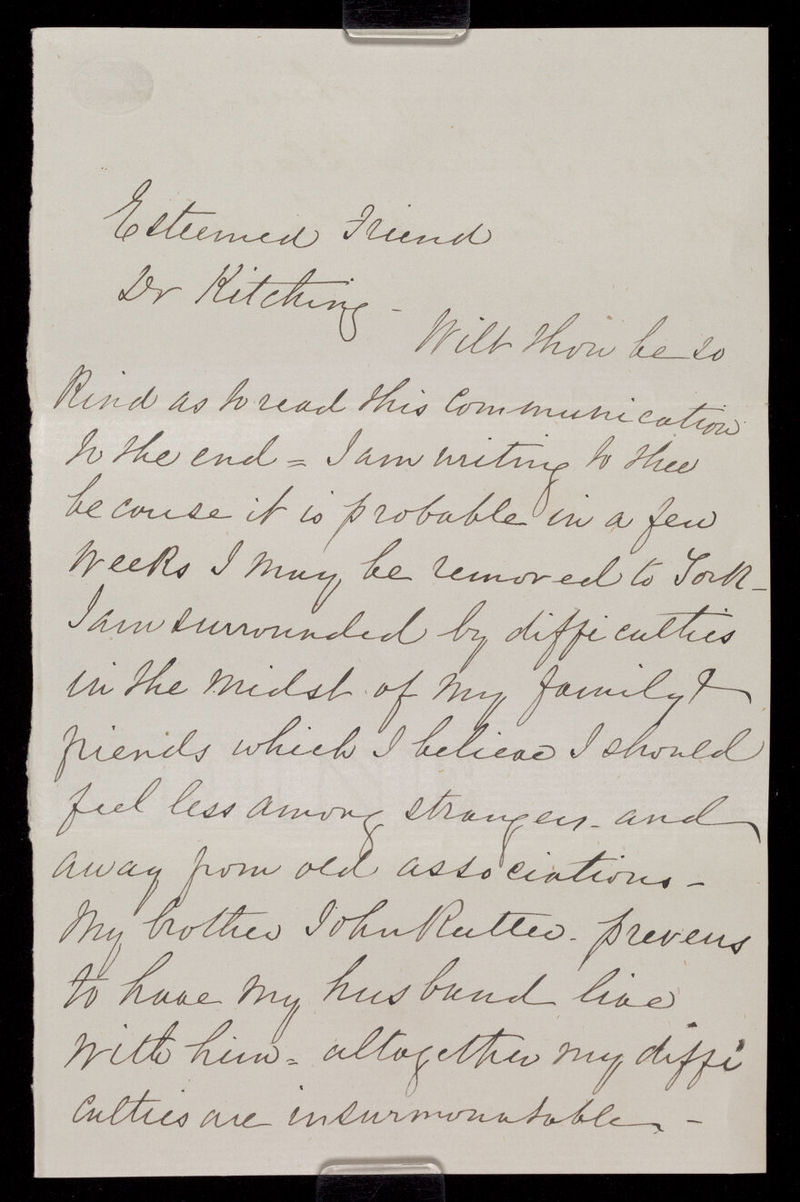 Esteemed Friend
Dr Kitching -
Wilt thou be so
kind as to read this communication
to the end = I am writing to thee
because it is probable in a few
weeks I may be removed to York -
I am surrounded by difficulties
in the midst of my family &
friends which I believe I should
feel less among strangers - and
away from old associations -
My brother John Rutter -
to have my husband live
with him = altogether my diffi
culties are insurmountable -